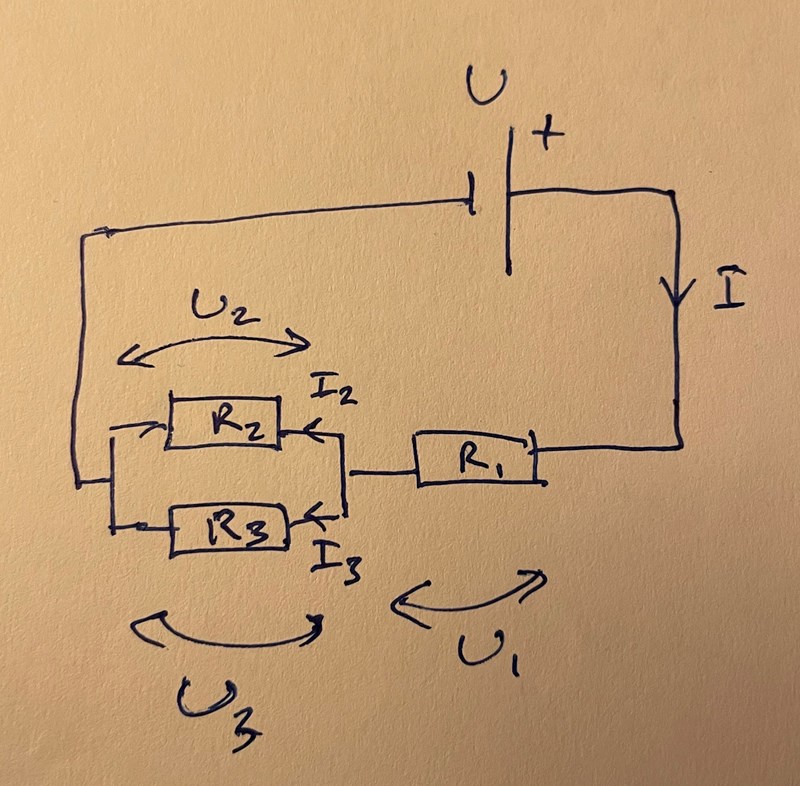 U
+
I
U₂
I₂
R₂
R₁
R₃
I₃
U₁
U₃